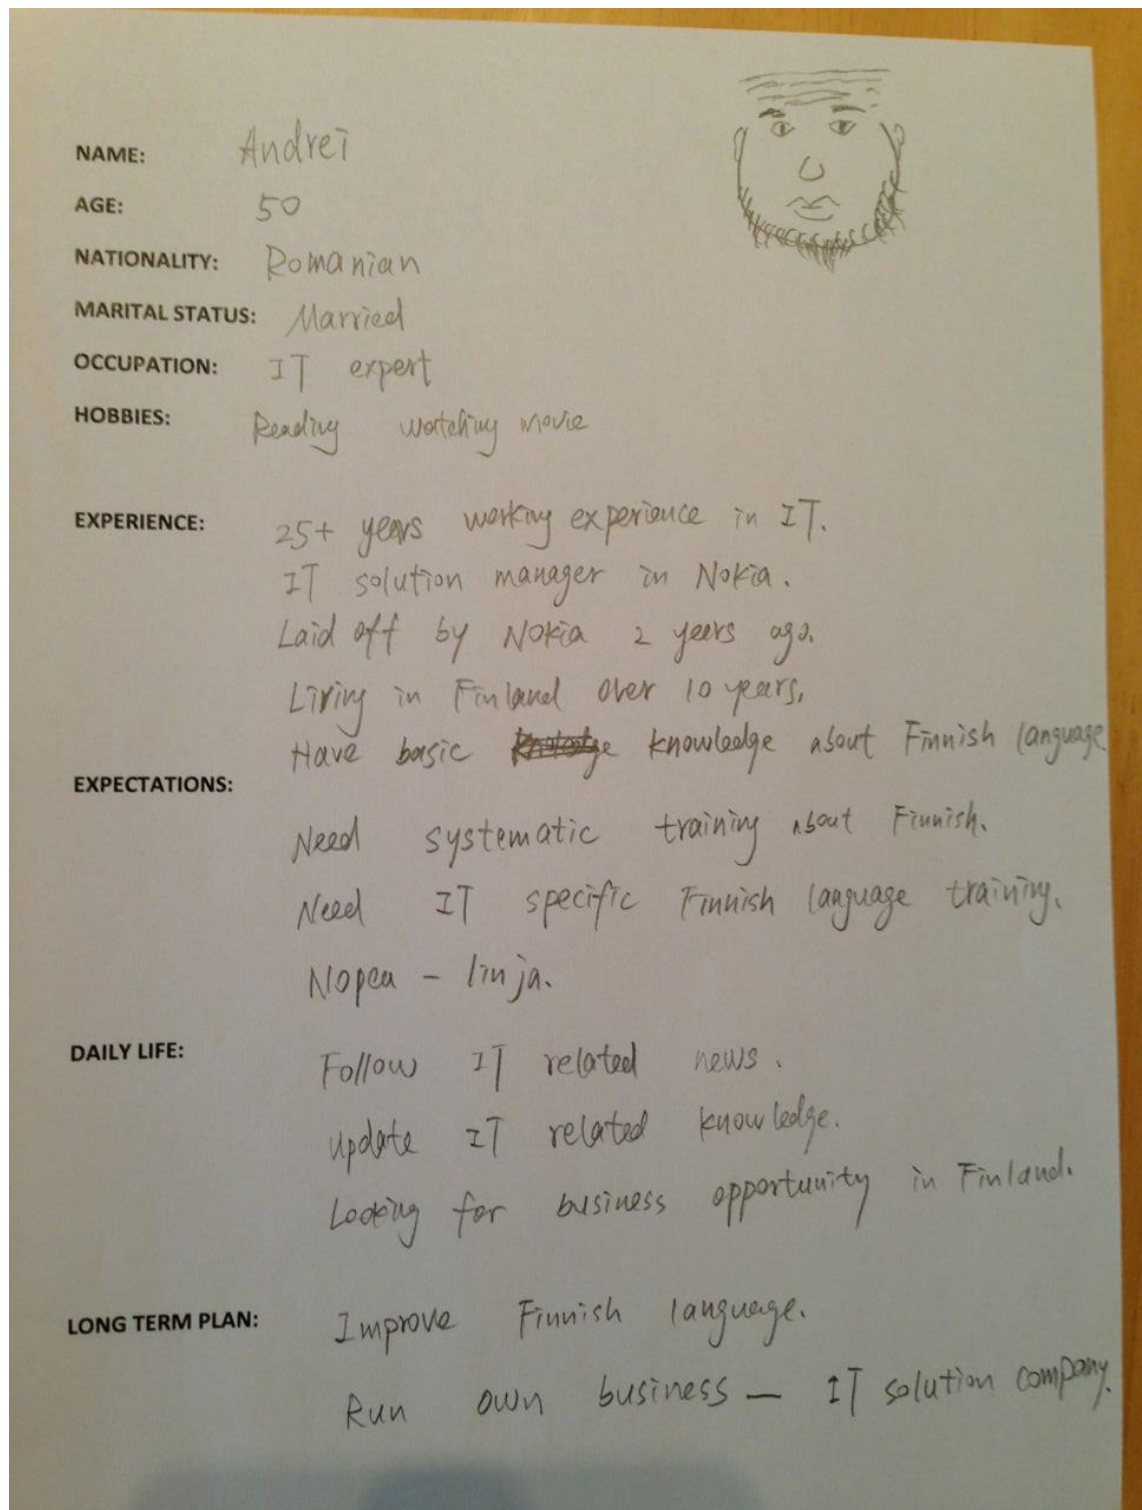 NAME: Andrei
AGE: 50
NATIONALITY: Romanian
MARITAL STATUS: Married
OCCUPATION: IT expert
HOBBIES: Reading watching movie
EXPERIENCE: 25+ years working experience in IT.
IT solution manager in Nokia.
Laid off by Nokia 2 yeers ago.
Living in Finland over 10 years.
Have basic knowledge about Finnish language.
EXPECTATIONS:
Need systematic training about Finnish.
Need IT specific Finnish language training.
Nopea - linja.
DAILY LIFE: Follow IT related news.
update IT related knowledge.
Looking for business opportunity in Finland.
LONG TERM PLAN: Improve Finnish language.
Run own business — IT solution company.